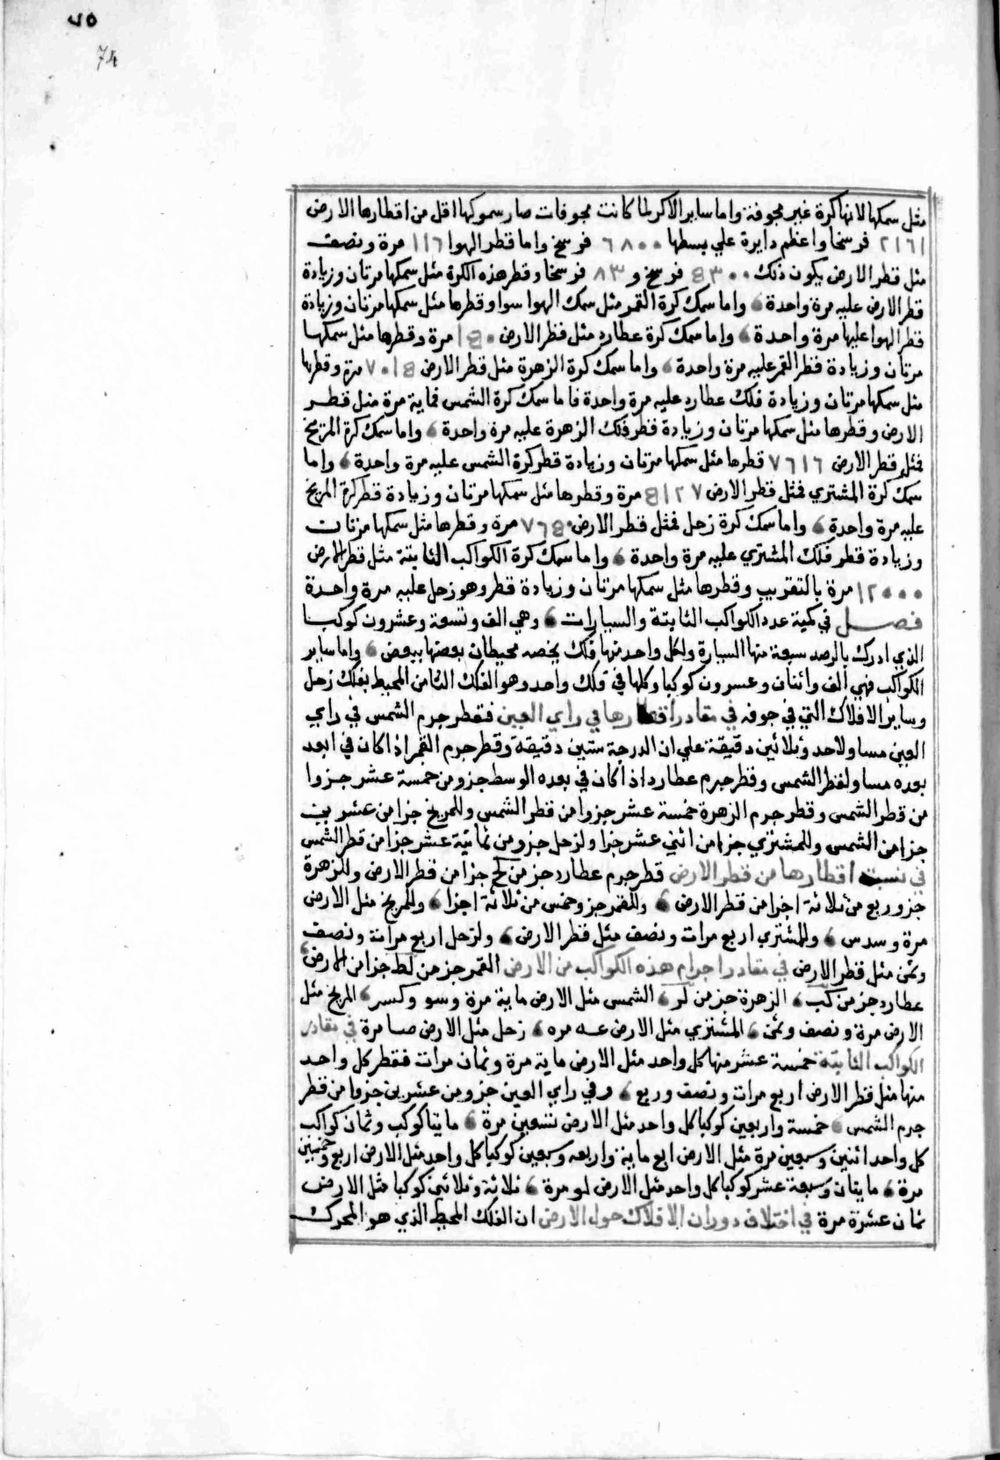 ٧٥
74
مثل سمكها لانها كرة غير مجوفة واما ساير الاكر لما كانت مجوفات صار سموكها اقل من اقطارها الارض
٢١٦١ فرسخا واعظم دايرة علي بسطها ٦٨٠٠ فرسخ واما قطر الهوا ١١٦ مرة ونصف
مثل قطر الارض يكون ذلك فرسخ و ٨٣ فرسخا وقطر هذه الكرة مثل سمكها مرتان وزيادة
قطر الارض عليه مرة واحدة واما سمك كرة القمر مثل سمك الهوا سوا وقطرها مثل سمكها مرتان وزيادة
قطر الهوا عليها مرة واحدة واما سمك كرة عطارد مثل قطر الارض مرة وقطرها مثل سمكها
مرتان وزيادة قطر القمر عليه مرة واحدة واما سمك كرة الزهرة مثل قطر الارض مرة وقطرها
مثل سمكها مرتان وزيادة فلك عطارد عليه مرة واحدة فاما سمك كرة الشمس فماية مرة مثل قطر
الارض وقطرها مثل سمكها مرتان وزيادة قطر فلك الزهرة عليه مرة واحدة واما سمك كرة المريخ
فمثل قطر الارض ٧٦١٦ قطرها مثل سمكها مرتان وزيادة قطر كرة الشمس عليه مرة واحدة واما
سمك كرة المشتري فمثل قطر الارض مرة وقطرها مثل سمكها مرتان وزيادة قطر كرة المريخ
عليه مرة واحدة واما سمك كرة زحل فمثل قطر الارض مرة وقطرها مثل سمكها مرتان
وزيادة قطر فلك المشتري عليه مرة واحدة واما سمك كرة الكواكب الثابتة مثل قطر الارض
١٢٠٠٠ مرة بالتقريب وقطرها مثل سمكها مرتان وزيادة قطر وهو زحل عليه مرة واحدة
فصل في كمية عدد الكواكب الثابتة والسيارات وهي الف وتسعة وعشرون كوكبا
الذي ادرك بالرصد سبعة منها السيارة ولكل واحد منها فلك يخصه محيطان بعضها ببعض واما ساير
الكواكب فهي الف واثنان وعسرون كوكبا وكلها في فلك واحد وهو الفلك الثامن المحيط بفلك زحل
وساير الافلاك التي في جوفه في مقادر اقطارها في راي العين فقطر جرم الشمس في راي
العين مساو لاحد وثلاثين دقيقة علي ان الدرجة ستين دقيقة وقطر جرم القمر اذا كان في ابعد
بعده مساو لقطر الشمس وقطر جرم عطارد اذا كان في بعده الوسط جزو من خمسة عشر جزوا
من قطر الشمس وقطر جرم الزهرة خمسة عشر جزوا من قطر الشمس وللمريخ جزا من عشرين
جزا من الشمس وللمشتري جزا من اثني عشر جزا ولزحل جزو من ثمانية عشر جزا من قطر الشمس
في نسبة اقطارها من قطر الارض قطر جرم عطارد جز من كح جزا من قطر الارض وللزهرة
جز وربع من ثلاثة اجزا من قطر الارض وللقمر جز وخمس من ثلاثة اجزا وللمريخ مثل الارض
مرة وسدس وللمشتري اربع مرات ونصف مثل قطر الارض ولزحل اربع مرات ونصف
وثمن مثل قطر الارض في مقادر اجرام هذه الكواكب من الارض القمر جز من لط جزا من الارض
عطارد جز من كب الزهرة جز من لو الشمس مثل الارض ماية مرة وسو وكسر المريخ مثل
الارض مرة ونصف وثمن المشتري مثل الارض مره زحل مثل الارض مرة في مقادر
الكواكب الثابتة خمسة عشر منها كل واحد مثل الارض ماية مرة وثمان مرات فقطر كل واحد
منها مثل قطر الارض اربع مرات ونصف وربع وفي راي العين جزو من عشرين جزوا من قطر
جرم الشمس خمسة واربعين كوكبا كل واحد مثل الارض تسعين مرة مايتا كوكب وثمان كواكب
كل واحد اثنين وسبعين مرة مثل الارض اربع ماية واربعه وسبعين كوكبا كل واحد مثل الارض اربع وخمسين
مرة مايتان وسبعة عشر كوكبا كل واحد مثل الارض لو مرة ثلاثة وثلاثي كوكبا مثل الارض
ثمان عشرة مرة في اختلاف دوران الافلاك حول الارض ان الفلك المحيط الذي هو المحرك